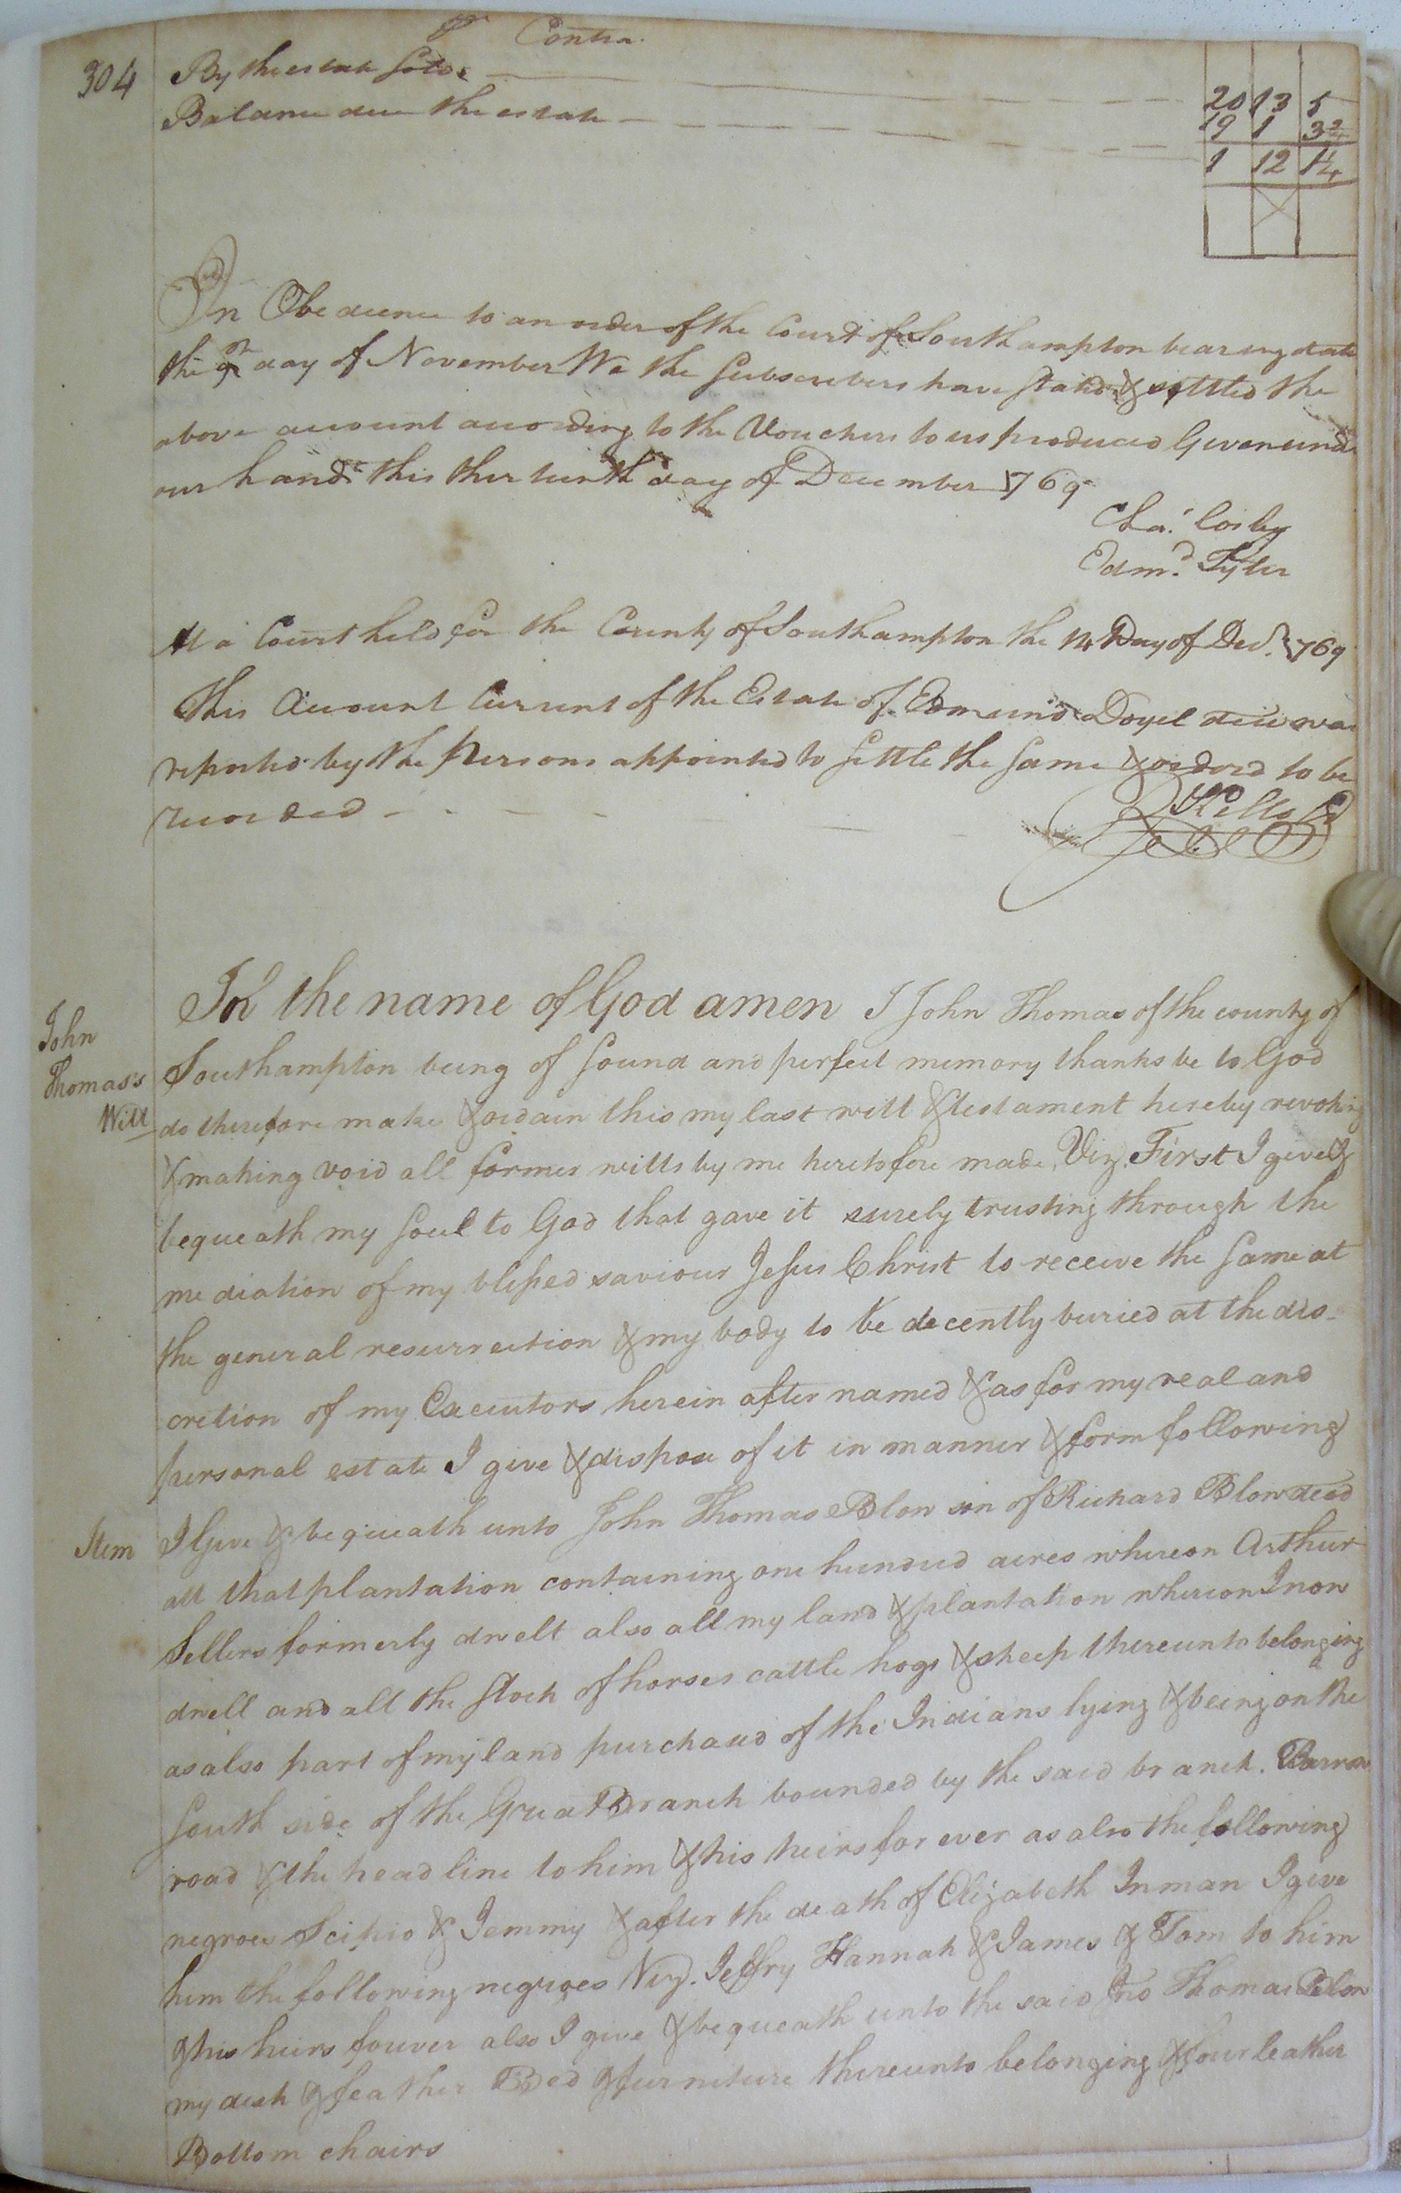 304
Contra
By the estate sold 20 13 5
Balance due the estate 19 1 3¾
1 12 1¼
In Obedience to an order of the Court of Southampton bearing date
the 9th day of November We the Subscribers have stated & settled the
above account according to the Vouchers to us produced Given under
our hands this thirteenth day of December 1769
Cha.s Cosby
Edm.d Tyler
At a Court held for the County of Southampton the 14 Day of Dec.r 1769
This Account Current of the Estate of Edmund Doyel dec'd was
reported by the Persons appointed to settle the same & order'd to be
recorded
John
Thomas's
Will
In the name of God amen I John Thomas of the county of
Southampton being of sound and perfect memory thanks be to God
do therefore make & ordain this my last will & testament hereby revoking
& making void all former wills by me heretofore made, Viz. First I give &
bequeath my soul to God that gave it surely trusting through the
mediation of my blessed saviour Jesus Christ to receive the same at
the general resurrection & my body to be decently buried at the dis-
cretion of my Executors herein after named & as for my real and
personal estate I give & dispose of it in manner & form following
Item I Give & bequeath unto John Thomas Blow son of Richard Blow decd
all that plantation containing one hundred acres whereon Arthur
Sellers formerly dwelt also all my land & plantation whereon I now
dwell and all the stock of horses cattle hogs & sheep thereunto belonging
as also part of my land purchased of the Indians lying & being on the
south side of the Great Branch bounded by the said branch. Barrow
road & the head line to him & his heirs for ever as also the following
negroes Scipio & Jemmy & after the death of Elizabeth Inman I give
him the following negroes Viz. Jeffry Hannah & James & Tom to him
& his heirs forever also I give & bequeath unto the said Jno Thomas Blow
my desk & feather Bed & furniture thereunto belonging & four leather
Bottom chairs